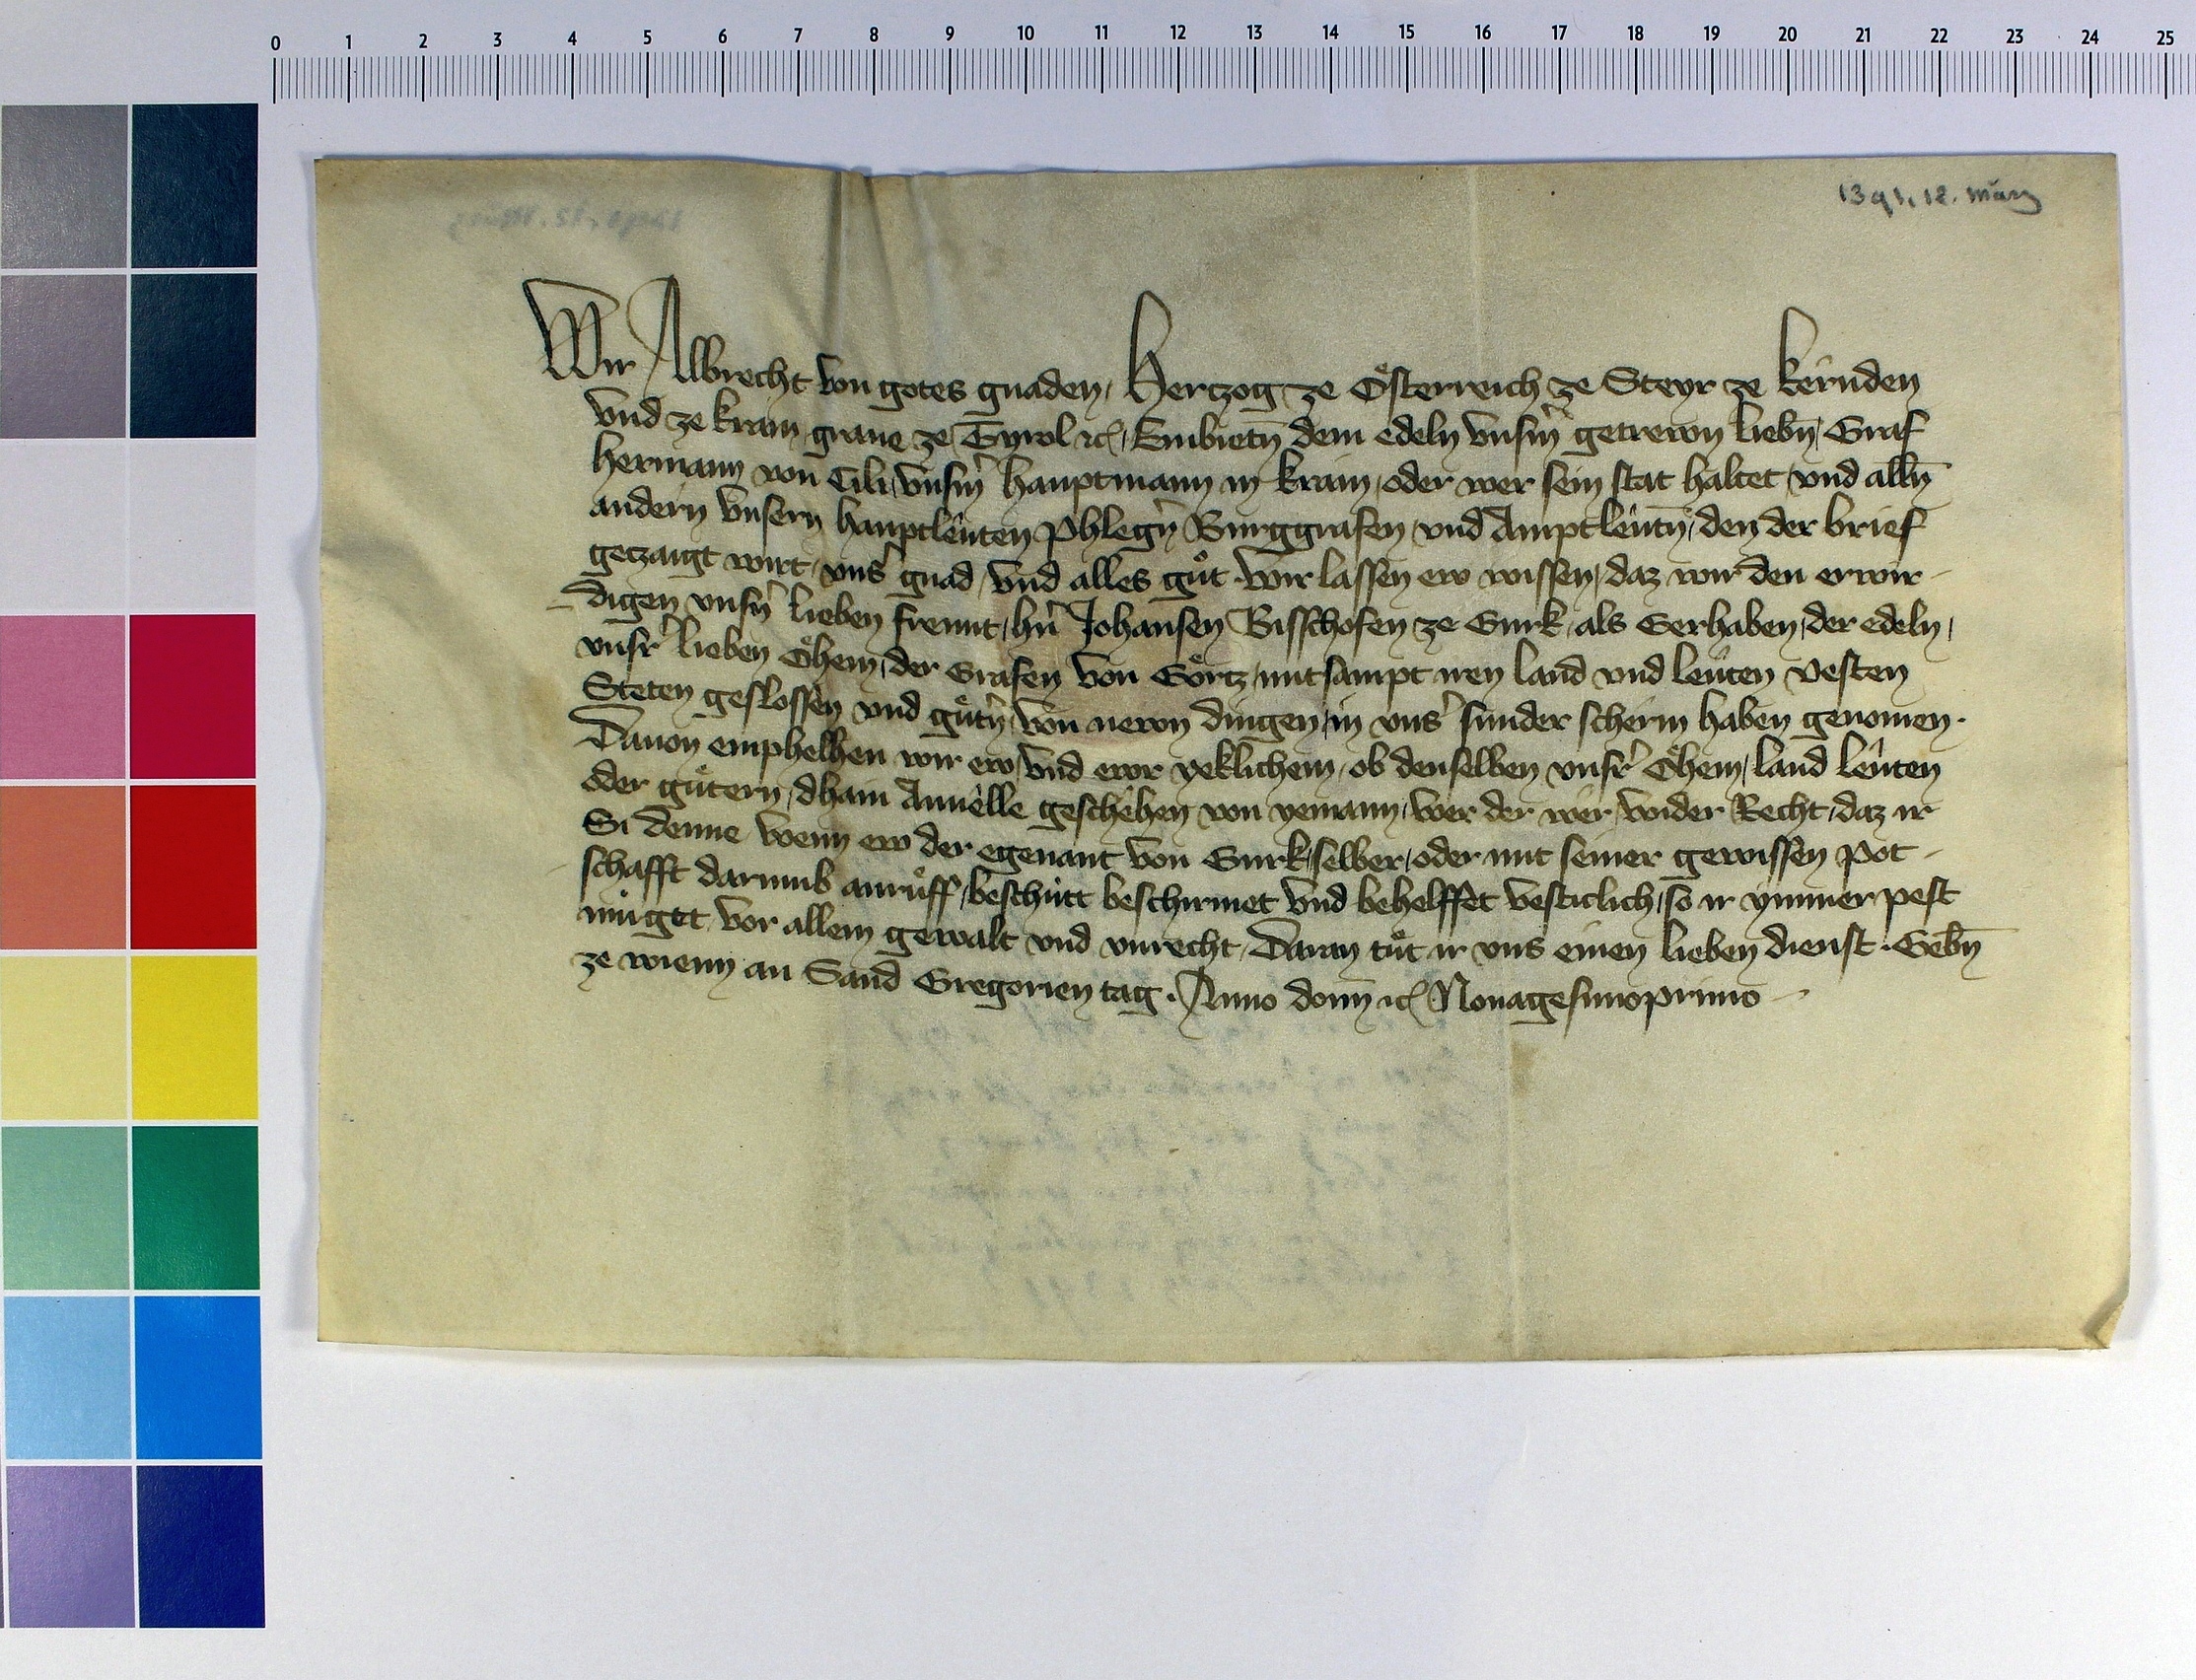 0 1 2 3 4 5 6 7 8 9 10 11 12 13 14 15 16 17 18 19 20 21 22 23 24 25
1391, 12. März
Wir Albrecht von gotes gnaden, Hertzog ze Österreich ze Steyr ze kernden
vnd ze krain graue ze Tyrol etc, Embietn̄ dem edeln vnsm̄ getrewn liebn̄, Graf
hermann von Cili, vnsm̄ hauptmann in krain, oder wer sein stat haltet, vnd alln̄
andern vnsern hauptleuten Phlegn̄ Burggrafen, vnd Amptleutn̄, den der brief
getzaigt wirt, vnser gnad, vnd alles gůt. Wir lassen ew wissen, daz wir den erwir-
digen vnsn̄ lieben freunt, hn̄ Johansen Bisschofen ze Gurk, als Gerhaben, der edeln,
vnsr̄ lieben Öhem, der Grafen von Görtz, mitsampt iren land vnd leuten Vesten
Steten geslossen vnd gůtn̄, von newn dingen, in vnsˀ sunder scherm haben genomen.
Dauon emphelhen wir ew, vnd ewr yeklichem, ob denselben vnsr̄ Öhem, land leuten
oder gůtern, dhain Anuelle geschehen von yemann, wer der wer, wider Recht, daz ir
Si denne wenn ew der egenant von Gurk, selber, oder mit seiner gewissen pot-
schafft darumb anrůff, beschütt beschirmet vnd behelffet vesticlich, so ir ymmer pest
müget vor allem gewalt vnd vnrecht, Daran tůt ir vns einen lieben dienst. Gebn̄
ze wienn an Sand Gregorien tag. Anno domͫ etc Nonagesimoprimo